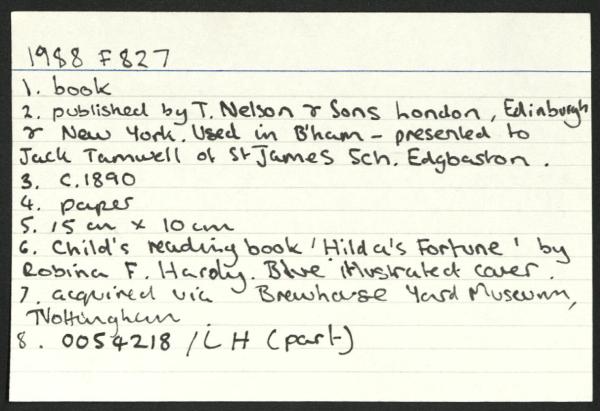 1988 F827
1. book
2. published by T. Nelson & Sons London, Edinburgh
& New York. Used in B'ham - presented to
Jack Tamwell of St James Sch. Edgbaston.
3. c.1890
4. paper
5. 15 cm x 10 cm
6. Child's reading book 'Hilda's Fortune' by
Robina F. Hardy. Blue illustrated cover.
7. acquired via Brewhouse Yard Museum,
Nottingham.
8. 0054218 / LH (part)